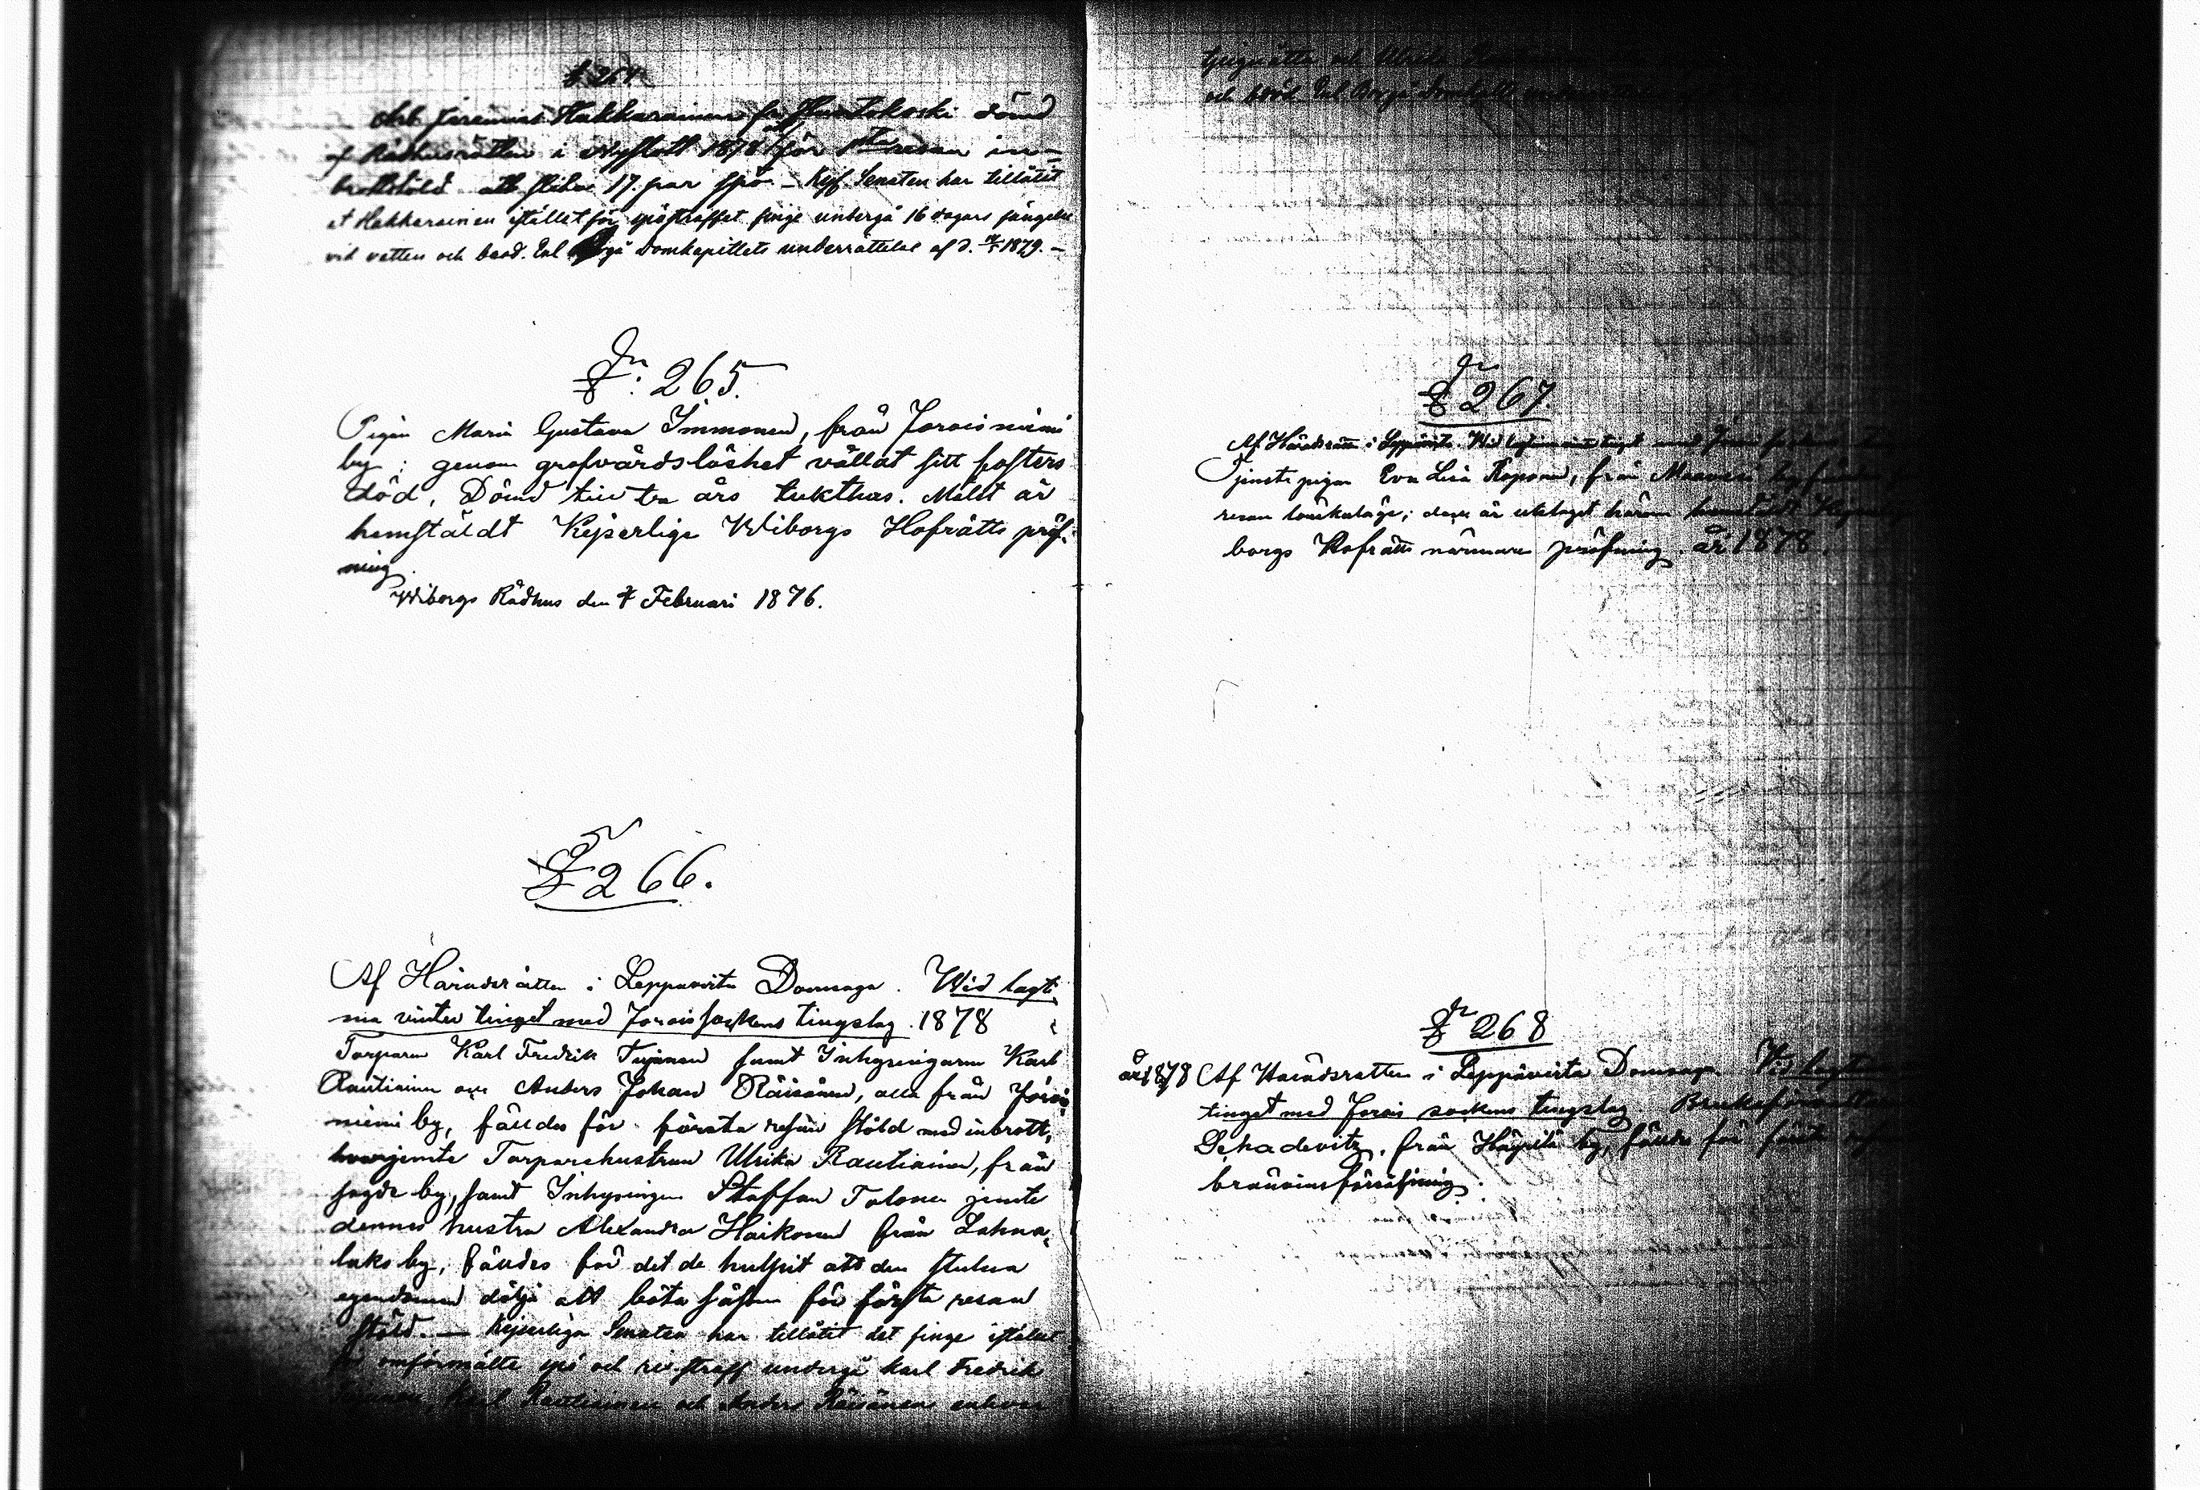 § 264.
Arb Jeremias Hakkarainen från Huutokoski dömd
af Rådhusrätten i Nyslott 1878 för 1sta resan in-
brottstöld att slita 17. par spö – Kejs. Senaten har tillåtit
at Hakkarainen istället för spöstraffet finge undergå 16 dagars fängelse
vid vatten och bröd. Enl Borgå Domkapitlets underrättelse af d. 1879. –
§ Jn: 265.
Pigan Maria Gustava Immonen, från Joroisniemi
by; genom grofvårdslöshet vållat sitt fosters
död, Dömd till tu års tukthus. Målet är
hemstäldt Kejserliga Wiborgs Hofrätts pröf-
ning.
Wiborgs Rådhus den 7 Februari 1876.
§ 266.
Af Häradsrätten i Leppävirta Domsaga. Wid lagti-
ma vinter tinget med Jorois sockens tingslag. 1878
Torparen Karl Fredrik Tujanen samt Inhysingarne Karl
Rautiainen och Anders Johan Räisänen, alla från Jorois
niemi by, fäldes för första resan stöld med inbrott,
hvarjemte Torparehustrun Ulrika Rautiainen, från
sagde by, samt Inhysingen Staffan Tolonen jemte
dennes hustru Alexandra Haikonen från Lahna-
laks by, fäldes för det de hulpit att den stulna
egendomen dölja att böta såsom för första resan
stöld. — Kejserliga Senaten har tillåtit det finge istället
för omförmälte spö och ris straff undergå Karl Fredrik
Karl Rautiainen och Anders Räisänen enhvar
och Ulrika
och bröd Enl Borgå Domkapitl
§ Jn 267.
Af Häradsrätten i Leppävirta. Wid lagtima vintertinget med
Tjenstepigan Eva Lisa Roponen, från Maavesi by
resan lönskaläge; dock är utslaget härom hemstäldt
borgs Hofrätts närmare pröfning. år 1878.
§ Jn 268
år 1878 Af Häradsrätten i Leppävirta Domsaga. Vid lagtima
tinget med Jorois sockens tingslag. Bruksförvaltaren
Schadevitz, från Häyrilä by, fäldes för första
bränvinsförsäljning.